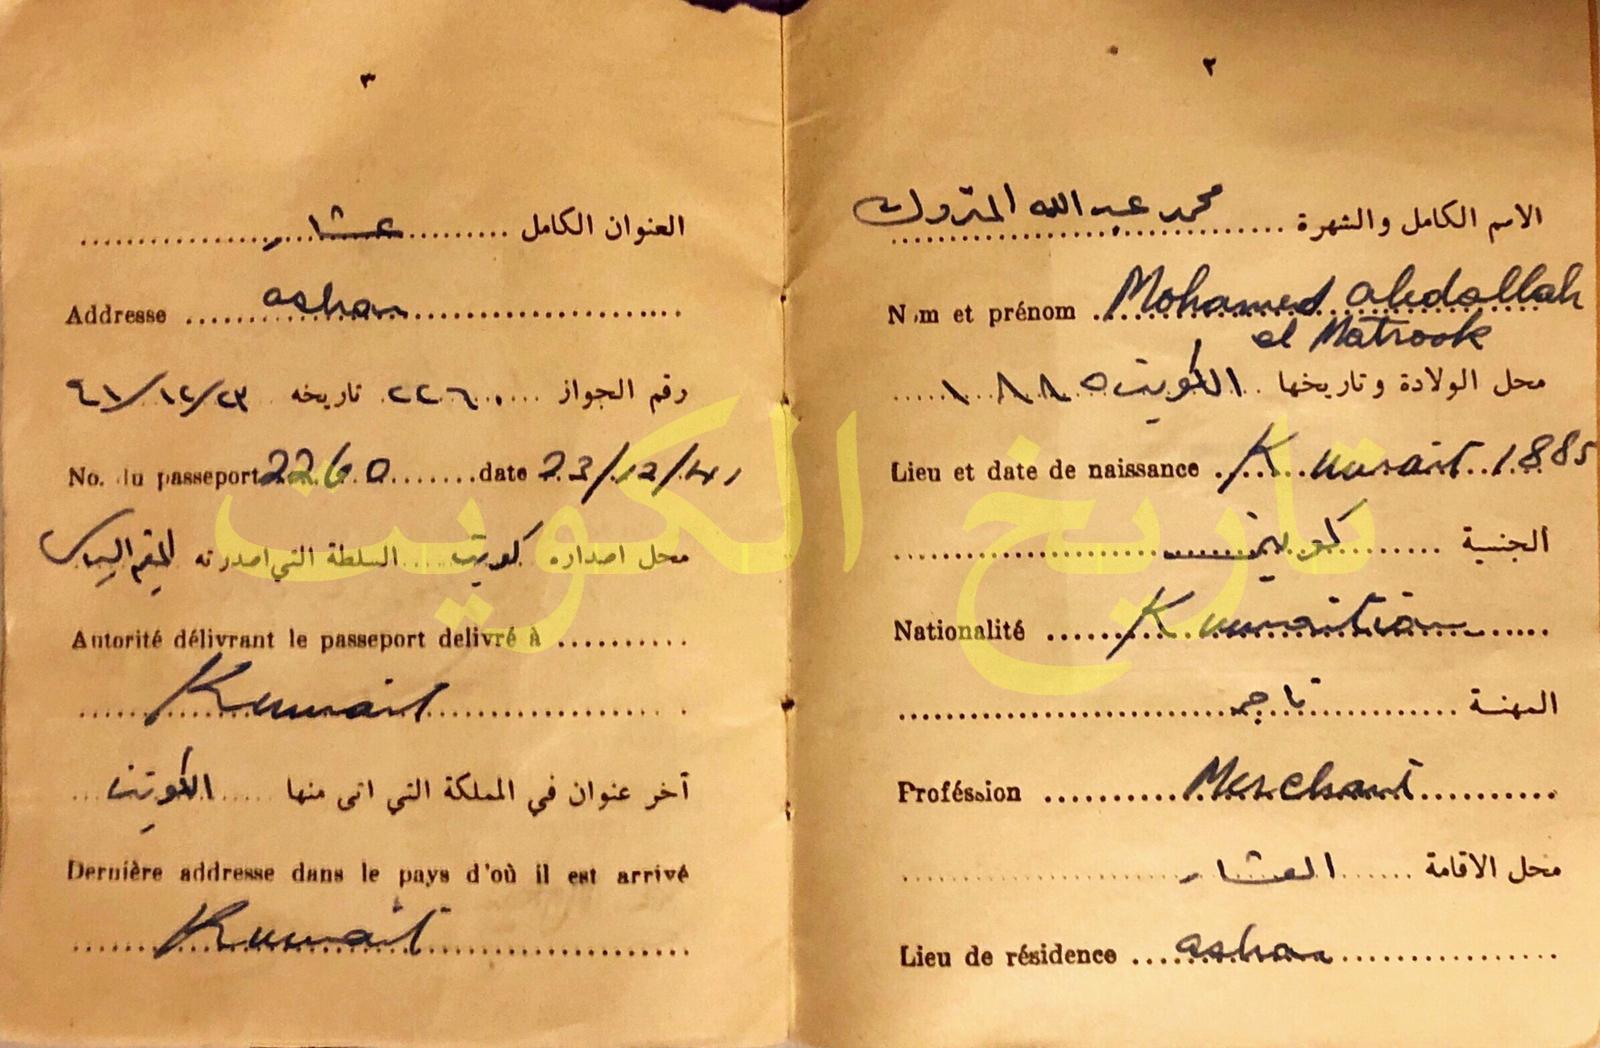 ٢
الاسم الكامل والشهرة محمد عبدالله المتروك
Nom et prénom Mohamed abdallah
el Matrook
محل الولادة وتاريخها الكويت ١٨٨٥
Lieu et date de naissance Kuwait 1885
الجنسية كويتي
Nationalité Kuwaitian
المهنة تاجر
Proféssion Merchant
محل الاقامة العشار
Lieu de résidence ashar
٣
العنوان الكامل عشار
Addresse ashar
رقم الجواز ٢٢٦٠ تاريخه ٤١/١٢/٢٣
No. du passeport 2260 date 23/12/41
محل اصداره كويت السلطة التي اصدرته
Autorité délivrant le passeport delivré à
Kuwait
آخر عنوان في المملكة التي اتى منها الكويت
Dernière addresse dans le pays d'où il est arrivé
Kuwait
تاريخ الكويت